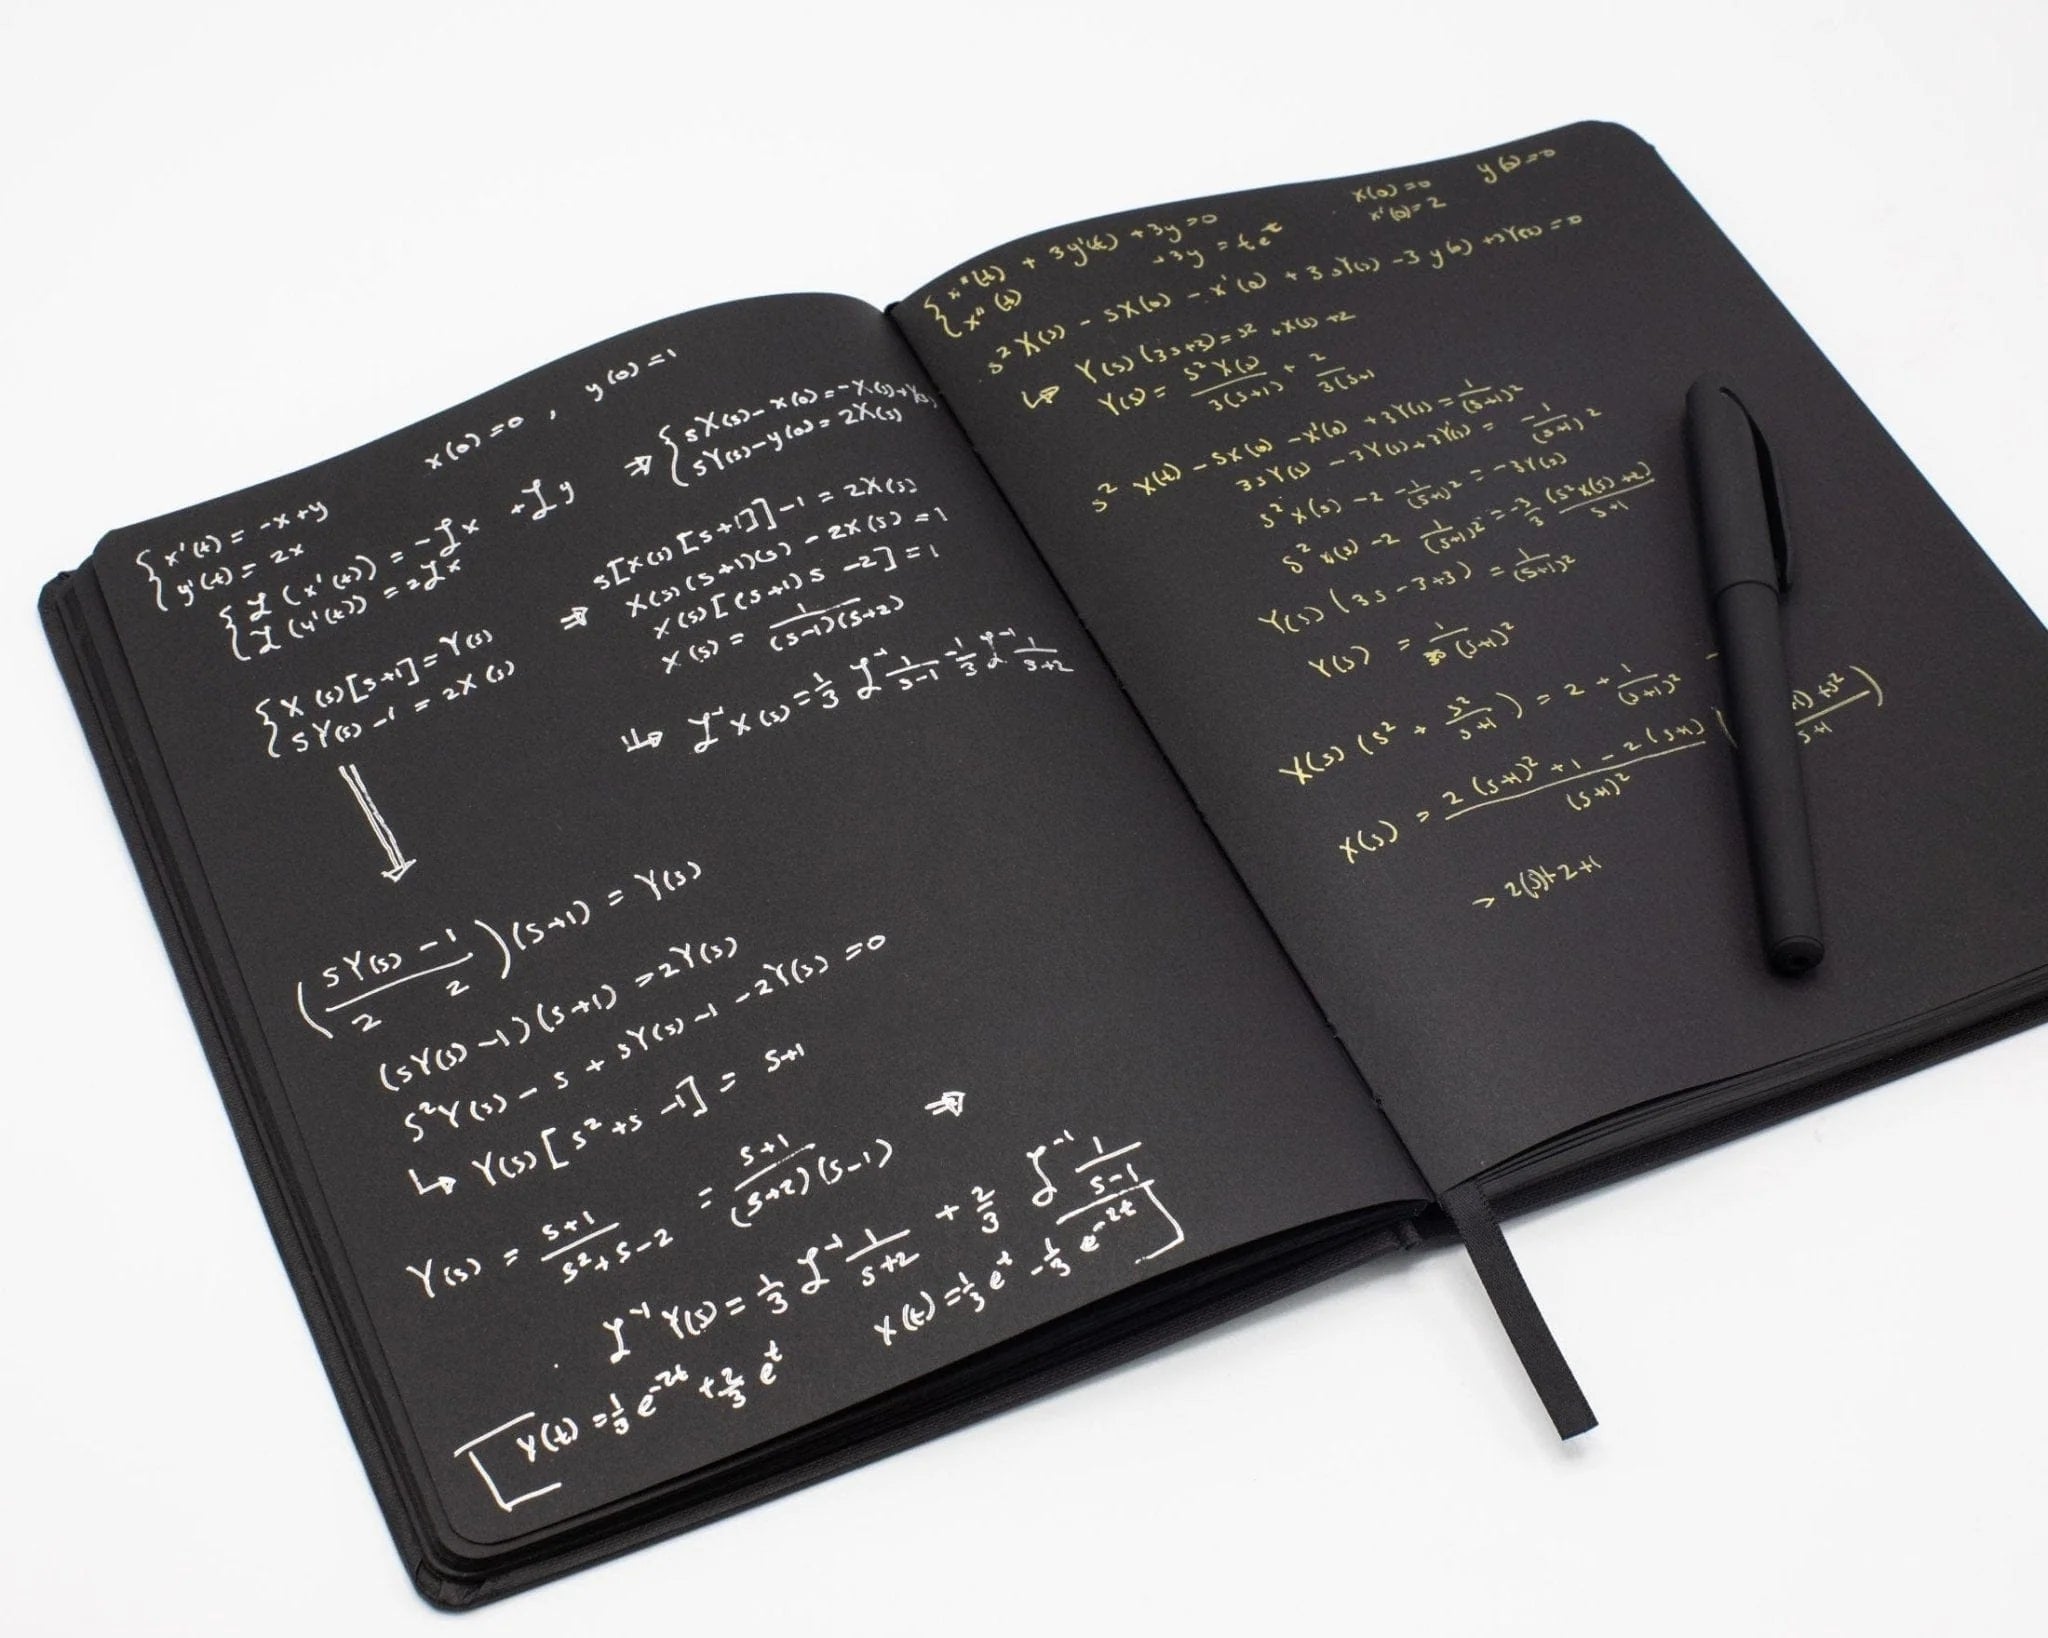 x(0)=0 , y(0)=1
{ x'(t) = -x+y
y'(t) = 2x
{ ℒ(x'(t)) = -ℒx +ℒy
ℒ(y'(t)) = 2ℒx
{ X(s)[s+1] = Y(s)
sY(s)-1 = 2X(s)
⇒ { sX(s)-x(0) = -X(s)+Y(s)
sY(s)-y(0) = 2X(s)
⇒ s[X(s)[s+1]]-1 = 2X(s)
X(s)(s+1)(s) - 2X(s) = 1
X(s)[(s+1)s -2] = 1
X(s) = 1/((s-1)(s+2))
↳ ℒ⁻¹X(s) = 1/3 ℒ⁻¹ 1/(s-1) - 1/3 ℒ⁻¹ 1/(s+2)
((sY(s)-1)/2 2)(s+1) = Y(s)
(sY(s)-1)(s+1) = 2Y(s)
s²Y(s) - s + sY(s) -1 -2Y(s) = 0
↳ Y(s)[s²+s -1] = s+1
Y(s) = (s+1)/(s²+s-2) = (s+1)/((s+2)(s-1)) ⇒
ℒ⁻¹Y(s) = 1/3 ℒ⁻¹ 1/(s+2) + 2/3 ℒ⁻¹ 1/(s-1)
y(t) = 1/3 e^-2t + 2/3 e^t
x(t) = 1/3 e^t - 1/3 e^-2t
x(0)=0 y(0)=0
x'(0)=2
{ x"(t) + 3y'(t) +3y=0
x"(t) +3y = te^t
s²X(s) - sX(0) - x'(0) + 3sY(s) -3y(0) +3Y(s) = 0
↳ Y(s)(3s+3) = s² +X(s) +2
Y(s) = s²X(s)/(3(s+1)) + 2/(3(s+1
s² X(t) - sX(0) -X'(0) +3Y(s) = 1/(s+1)²
3sY(s) - 3Y(s)+3Y(s) = -1/(s+1)²
s²X(s) -2 -1/(s+1)² = -3Y(s)
s²X(s) -2 1/(s+1)² = -3/3 (s²X(s)+2)/(s+1)
Y(s)(3s-3+3) = 1/(s+1)²
Y(s) = 1/(s+1)²
X(s)(s² + s²/(s+1)) = 2 + 1/(s+1)²
X(s) = (2(s+1)² +1 -2(s+1))/(s+1)²
→ 2(s)+2+1